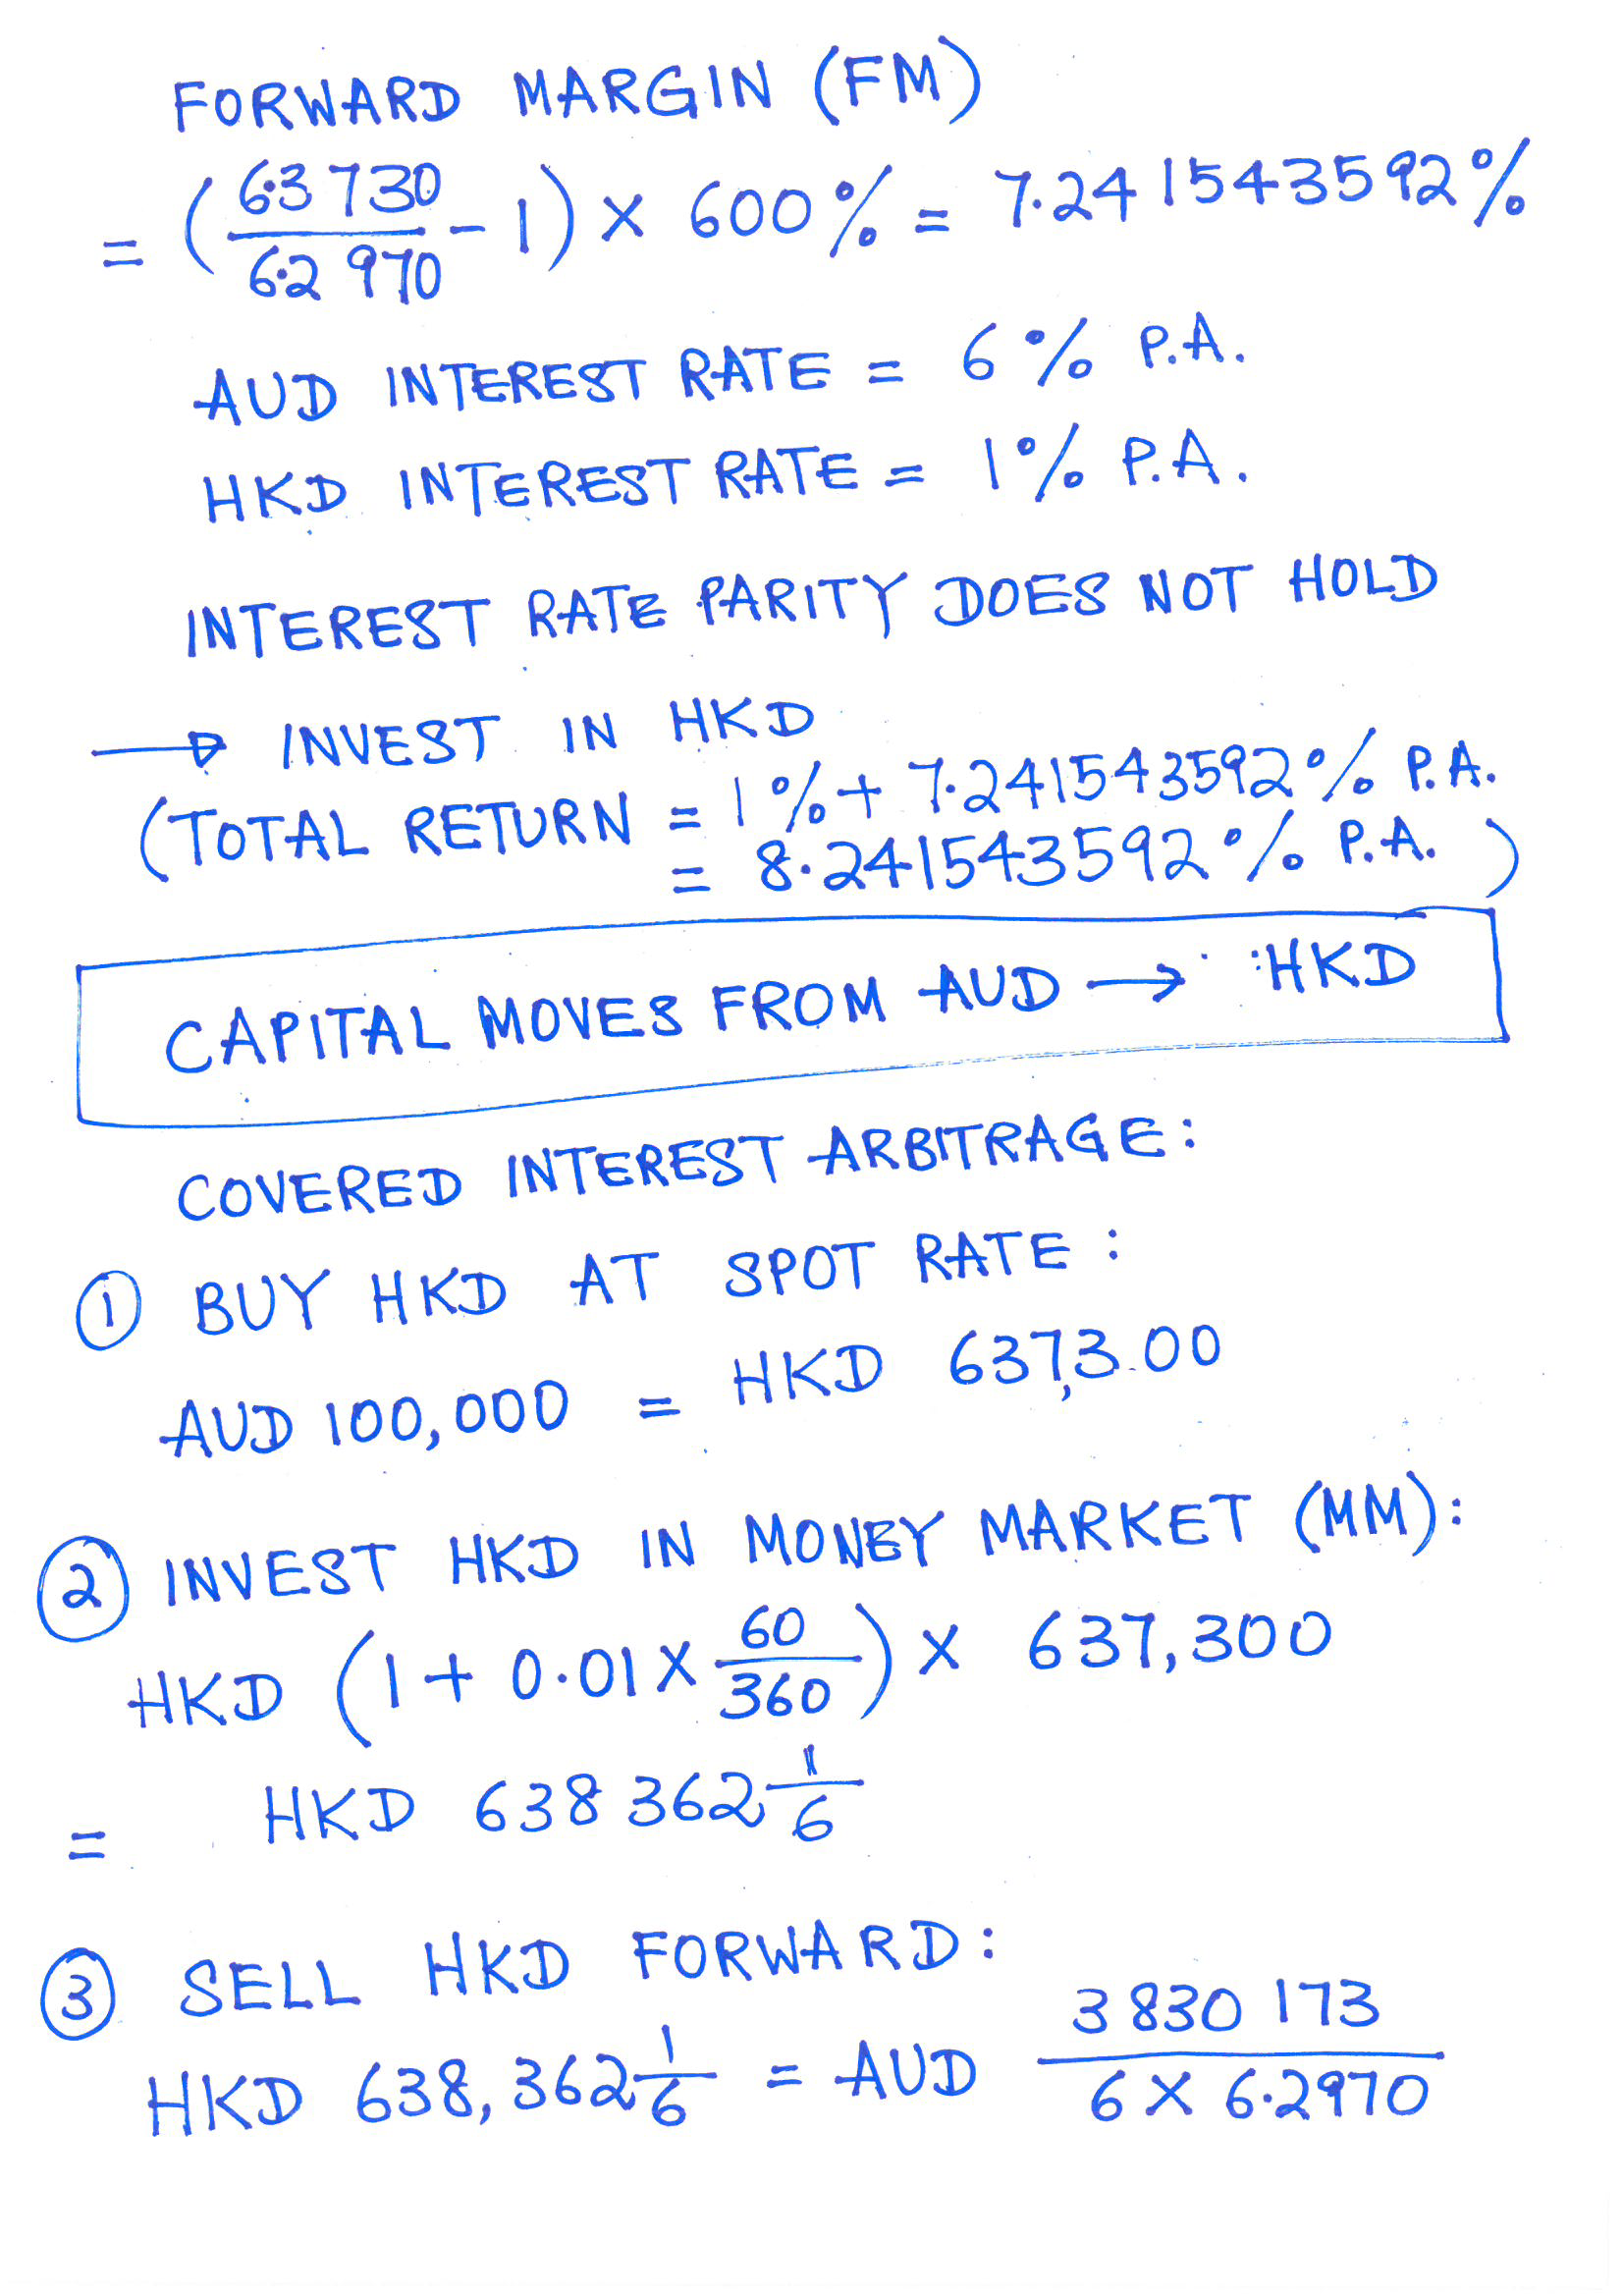 FORWARD MARGIN (FM)
= (6.3730/6.2970 - 1) × 600% = 7.241543592%
AUD INTEREST RATE = 6% P.A.
HKD INTEREST RATE = 1% P.A.
INTEREST RATE PARITY DOES NOT HOLD
→ INVEST IN HKD
(TOTAL RETURN = 1% + 7.241543592% P.A.
= 8.241543592% P.A.)
CAPITAL MOVES FROM AUD → HKD
COVERED INTEREST ARBITRAGE:
① BUY HKD AT SPOT RATE:
AUD 100,000 = HKD 637,3.00
② INVEST HKD IN MONEY MARKET (MM):
HKD (1 + 0.01 × 60/360) × 637,300
= HKD 638 362 1/6
③ SELL HKD FORWARD:
HKD 638,362 1/6 = AUD 3 830 173 / 6 × 6.2970